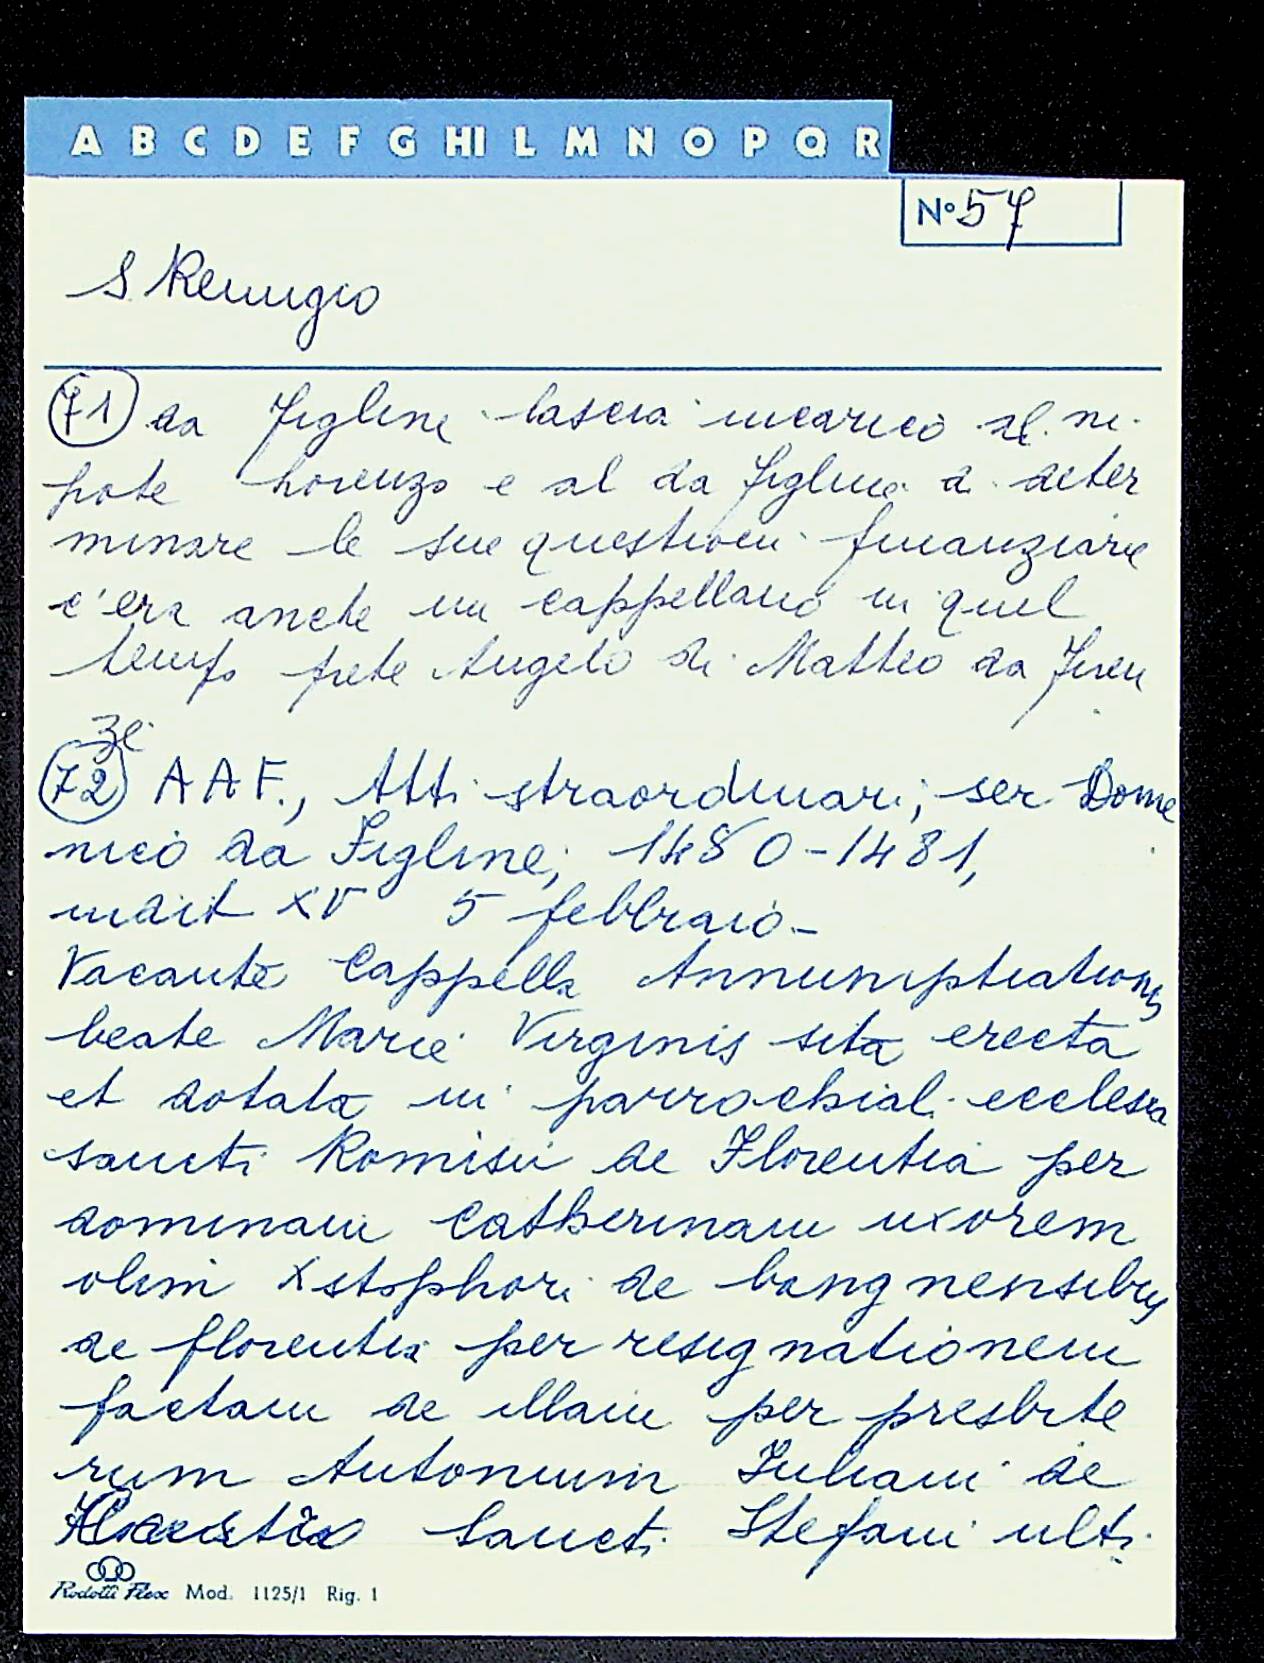 A B C D E F G HI L M N O P Q R
N° 57
S Remigio
71 da Figline lascia incarico al ni-
pote Lorenzo e al da Figline a deter
minare le sue questioni finanziarie
c'era anche un cappellano in quel
tempo prete Angelo di Matteo da Firen
ze
72 A A F., Atti straordinari; ser Dome
nico da Figline; 1480-1481,
indict XV 5 febbraio-
Vacante Cappella Annumptiationis
beate Marie Virginis sita erecta
et dotata in parrochial. ecclesia
sancti Romisii de Florentia per
dominam Catherinam uxorem
olim Xstophori de bangnensibus
de florentia per resignationem
factam de illam per presbite
rum Antonium Iuliani de
Sancti Stefani ulti
Rodotti Flex Mod. 1125/1 Rig. 1